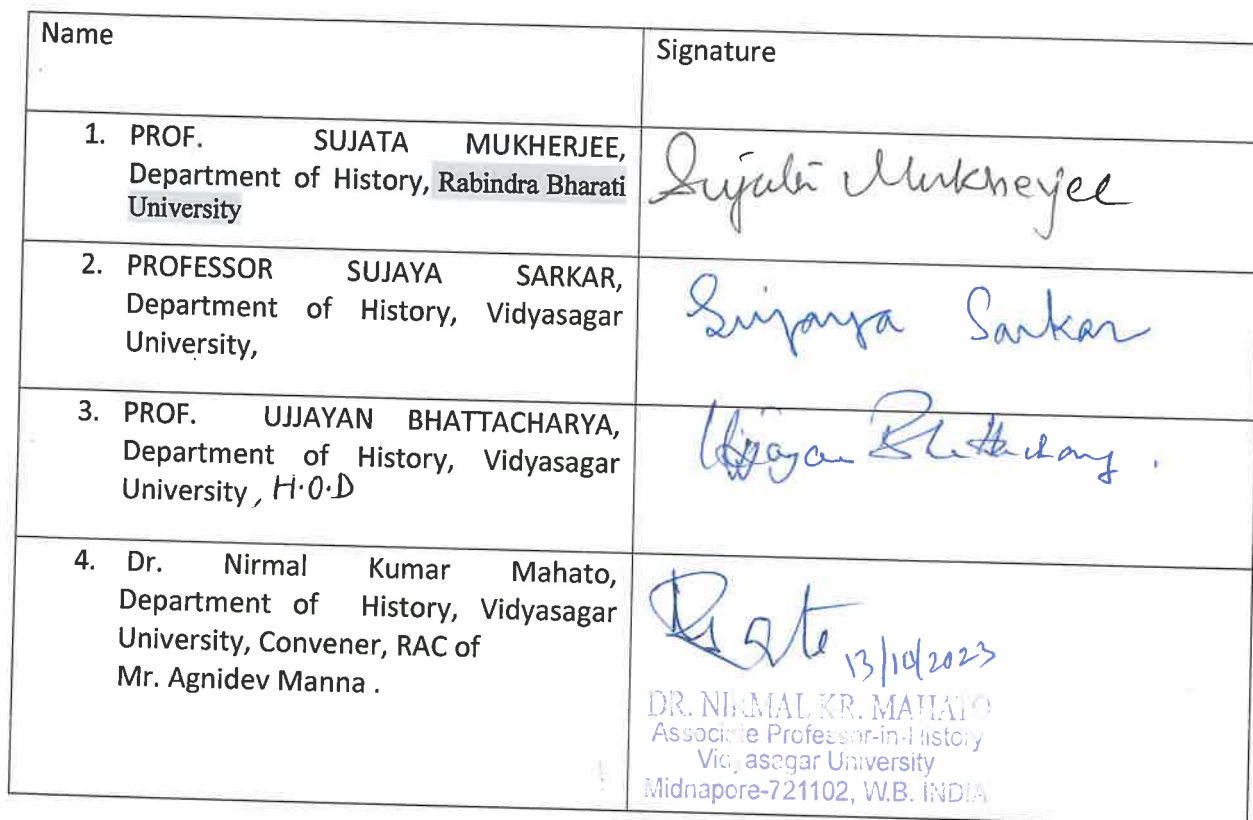 Name
Signature
1. PROF. SUJATA MUKHERJEE,
Department of History, Rabindra Bharati
University
Sujata Mukherjee
2. PROFESSOR SUJAYA SARKAR,
Department of History, Vidyasagar
University,
Sujaya Sarkar
3. PROF. UJJAYAN BHATTACHARYA,
Department of History, Vidyasagar
University, H.O.D
Ujjayan Bhattacharya.
4. Dr. Nirmal Kumar Mahato,
Department of History, Vidyasagar
University, Convener, RAC of
Mr. Agnidev Manna .
13/10/2023
DR. NIRMAL KR. MAHATO
Associate Professor-in-History
Vidyasagar University
Midnapore-721102, W.B. INDIA